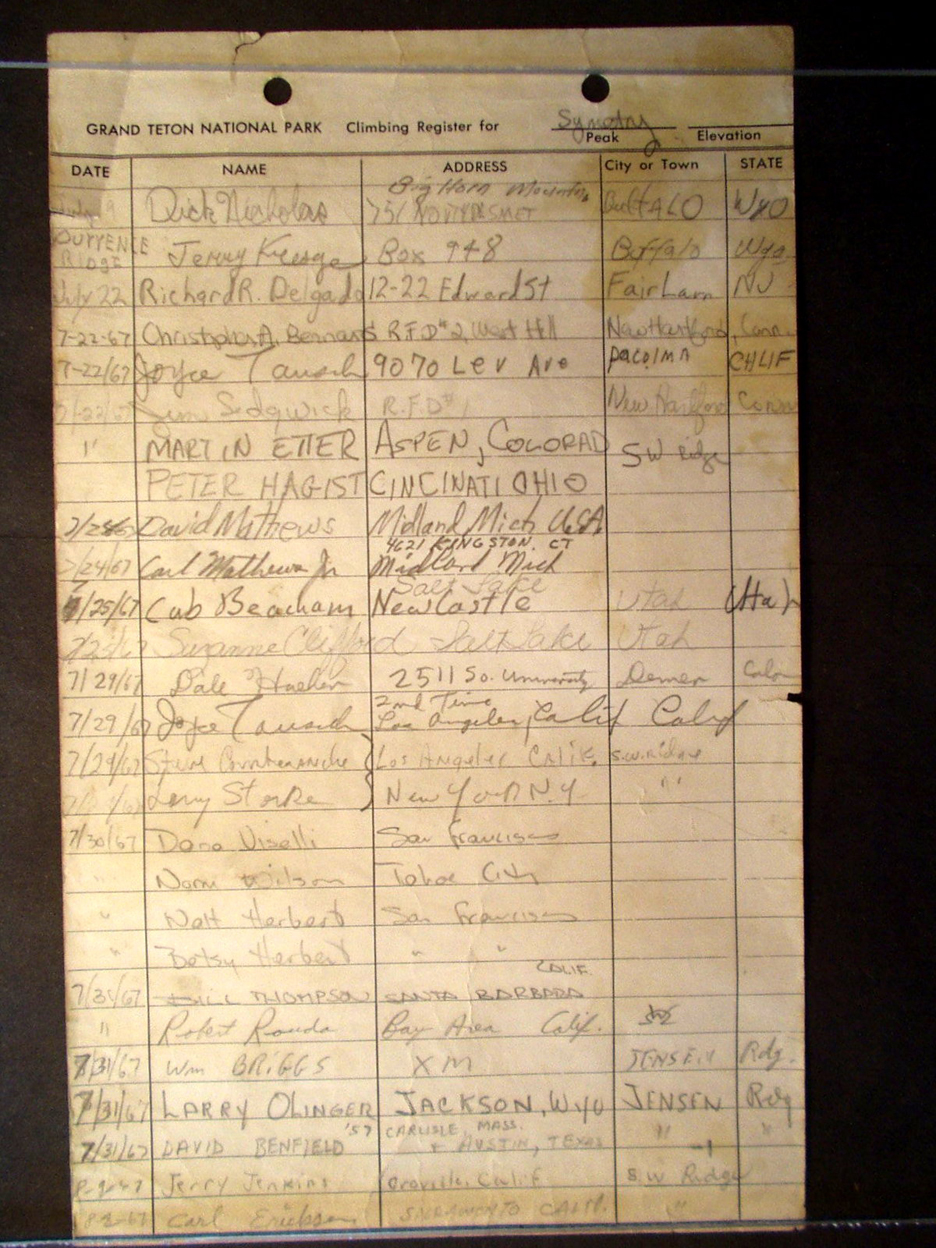 Symetry
GRAND TETON NATIONAL PARK Climbing Register for Peak Elevation
DATE NAME ADDRESS City or Town STATE
Big Horn Mountains
Dick Nicholas 751 Buffalo Wyo
DURRENCE RIDGE Jerry Kresge Box 948 Buffalo Wyo.
July 22 Richard R. Delgado 12-22 Edward St Fair Lawn NJ
7-22-67 Christopher A. Bernard R.F.D #2, West Hill New Hartford, Conn.
7-22/67 Joyce Tausch 9070 Lev Ave PACOIMA CALIF
7/22/67 Sedgwick R.F.D #1 New Hartford Conn
" MARTIN ETTER ASPEN, COLORAD SW Ridge
PETER HAGIST CINCINATI OHIO
David Mathews Midland Mich USA
4621 KINGSTON CT
7/24/67 Carl Mathews Jr Midland Mich
Salt Lake
7/25/67 Cub Beacham Newcastle Utah Utah
7/25/67 Suzanne Clifford Salt Lake Utah
7/29/67 Dale 2511 So. University Denver Colo
2nd Time
7/29/67 Joyce Tausch Los Angeles, Calif Calif
7/29/67 Steve Los Angeles Calif. S.W. ridge
Storke New York N.Y. " "
7/30/67 Dana Viselli San Francisco
" Norm Wilson Tahoe City
" Natt Herbert San Francisco
" Betsy Herbert " "
CALIF.
7/31/67 BILL THOMPSON SANTA BARBARA
" Robert Rouda Bay Area Calif.
7/31/67 Wm BRIGGS XM JENSEN Rdg.
7/31/67 LARRY OLINGER JACKSON, Wyo JENSEN Rdg
'57 CARLISLE, MASS.
7/31/67 DAVID BENFIELD + AUSTIN, TEXAS " "
8-2-67 Jerry Jenkins Oroville, Calif S.W Ridge
8-2-67 Carl Erickson SACRAMENTO CALIF. "